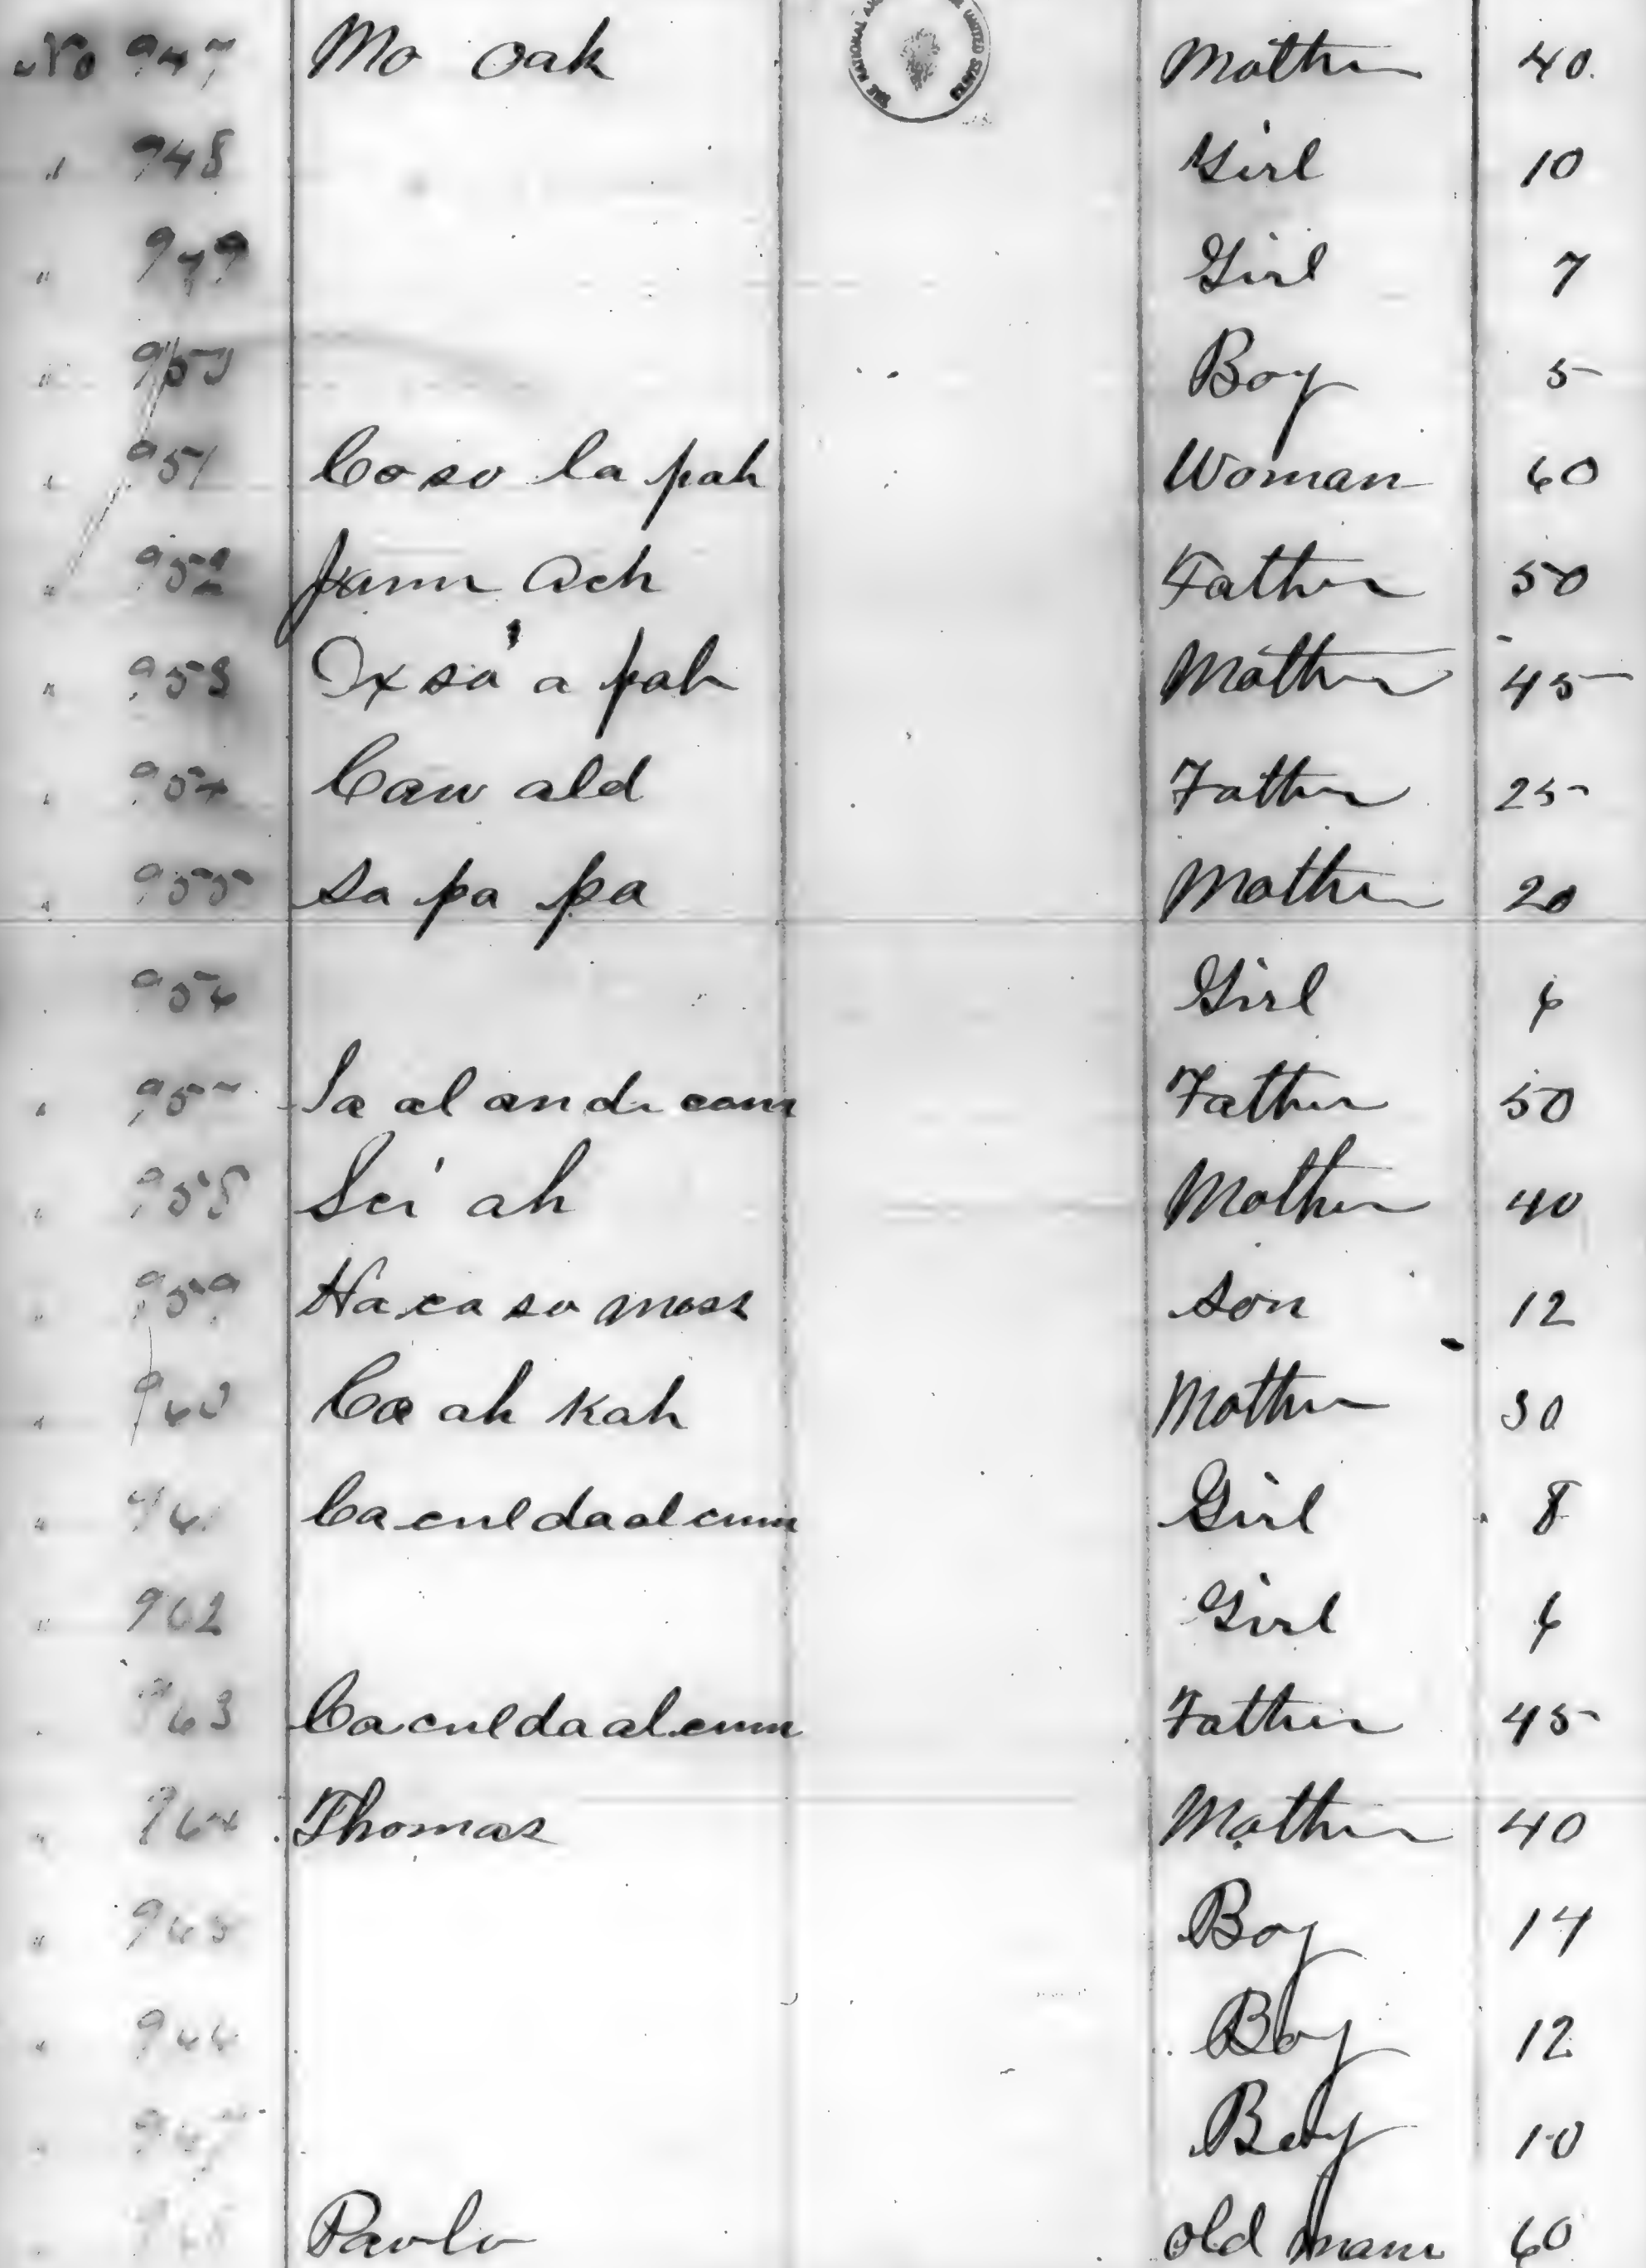 No 947 Mo Oak Mother 40
" 948 Girl 10
" 949 Girl 7
" 950 Boy 5
" 951 Co so la pah Woman 60
" 952 Ach Father 50
" 953 Ix sa' a pah Mother 45
" 954 Caw ald Father 25
" 955 Sa pa pa Mother 20
956 Girl 6
" 957 Sa al an de cam Father 50
" 958 Sei' ah Mother 40
" 959 Ha ca so moss Son 12
" 960 Ca ah Kah Mother 30
" 961 Ca cul da al cum Girl 8
" 962 Girl 6
" 963 Ca cul da al cum Father 45
" 964 Thomas Mother 40
" 965 Boy 14
" 966 Boy 12
" 967 Boy 10
" 968 Pavlo Old man 60